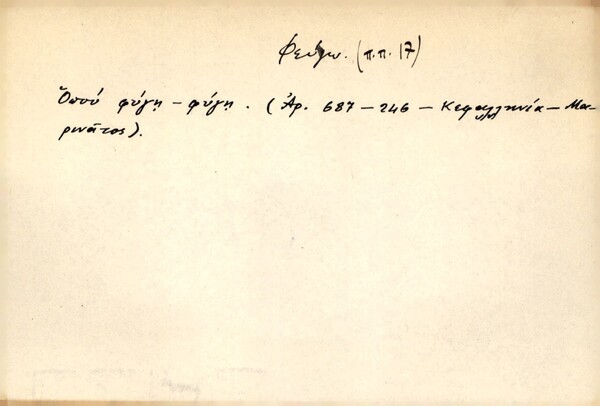 Φεύγω. (π.π. 17)
Ὁποὺ φύγῃ – φύγῃ. (Ἀρ. 687 – 246 – Κεφαλληνία – Μα-
ρινᾶτος).